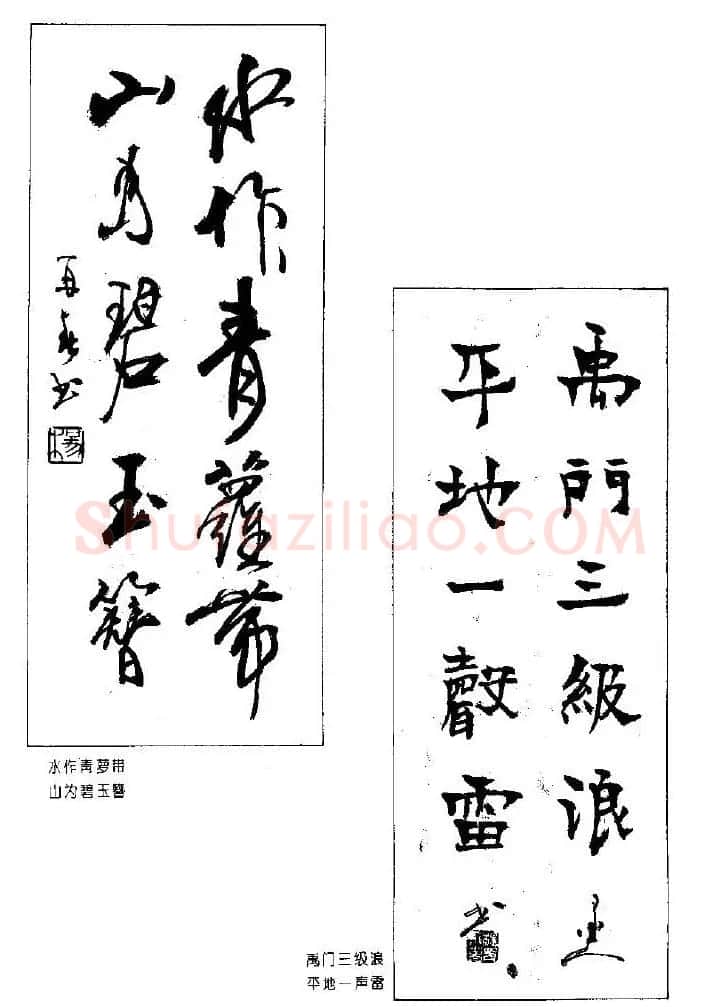 水作青蘿帶
山為碧玉簪
再春书
水作青萝带
山为碧玉簪
禹門三級浪
平地一聲雷
书
禹门三级浪
平地一声雷
Shufaziliao.COM